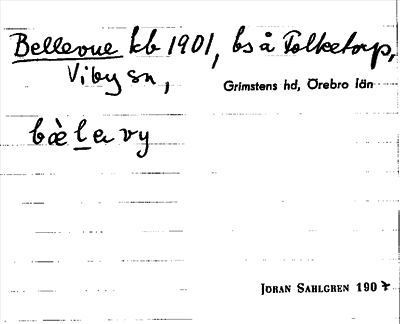 Bellevue kb 1901, bs å Folketorp,
Viby sn,
Grimstens hd, Örebro län
bæ̀lɐvy
JÖRAN SAHLGREN 190